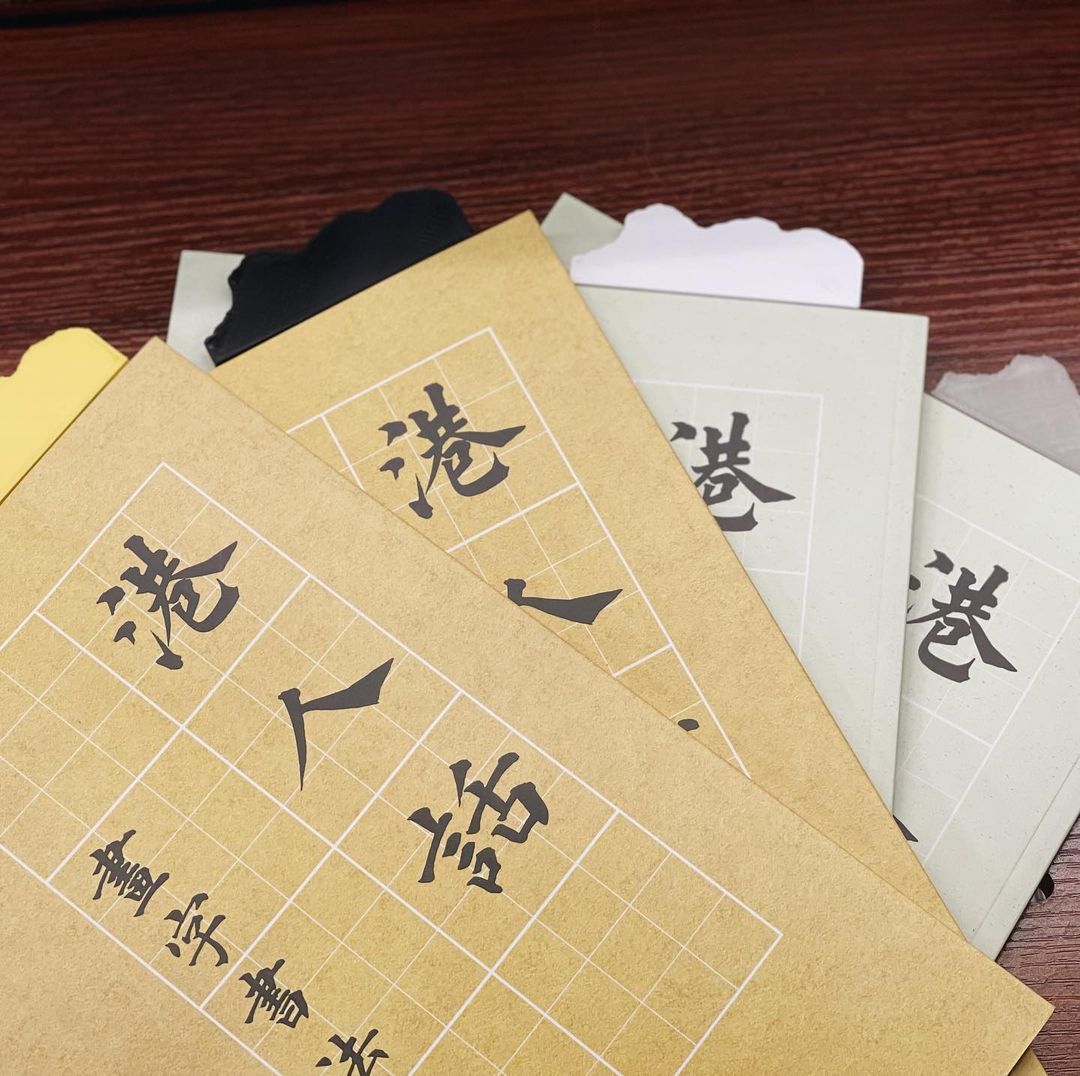 港人話
畫字書法
港人
港
港